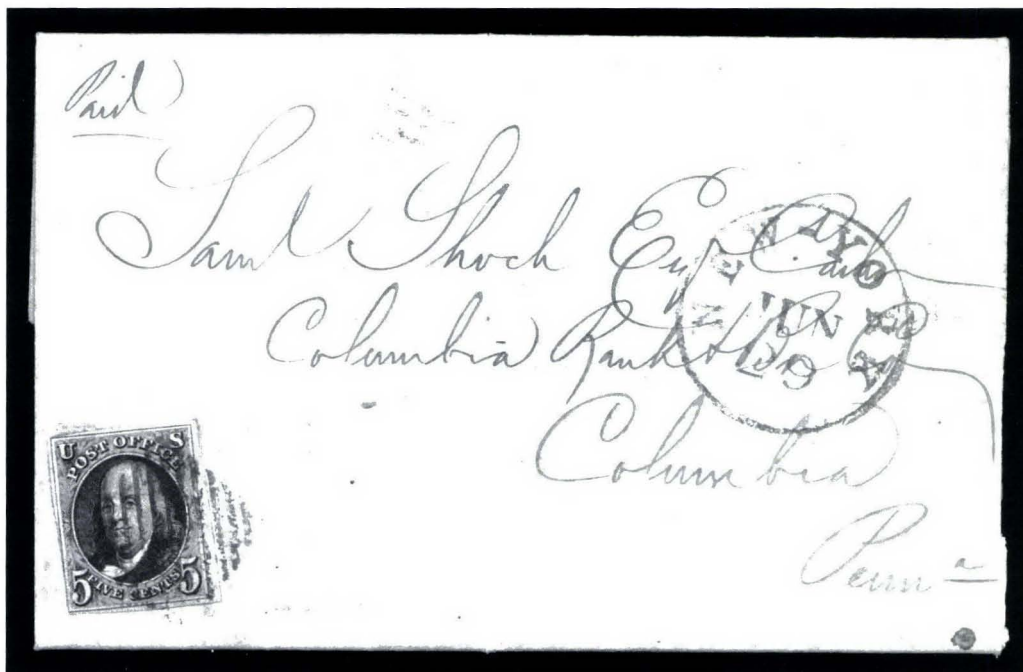 Paid
Saml Shoch Esq Cashr
Columbia Bank
Columbia
Penna
NEW YORK
JUN
29
U S
POST OFFICE
5 FIVE CENTS 5